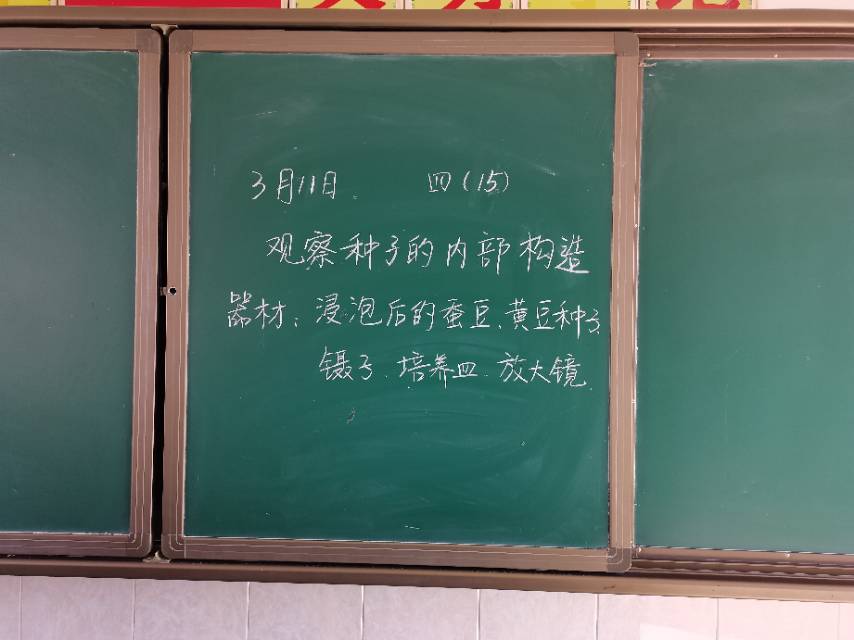 3月11日 四(15)
观察种子的内部构造
器材：浸泡后的蚕豆、黄豆种子
镊子、培养皿、放大镜